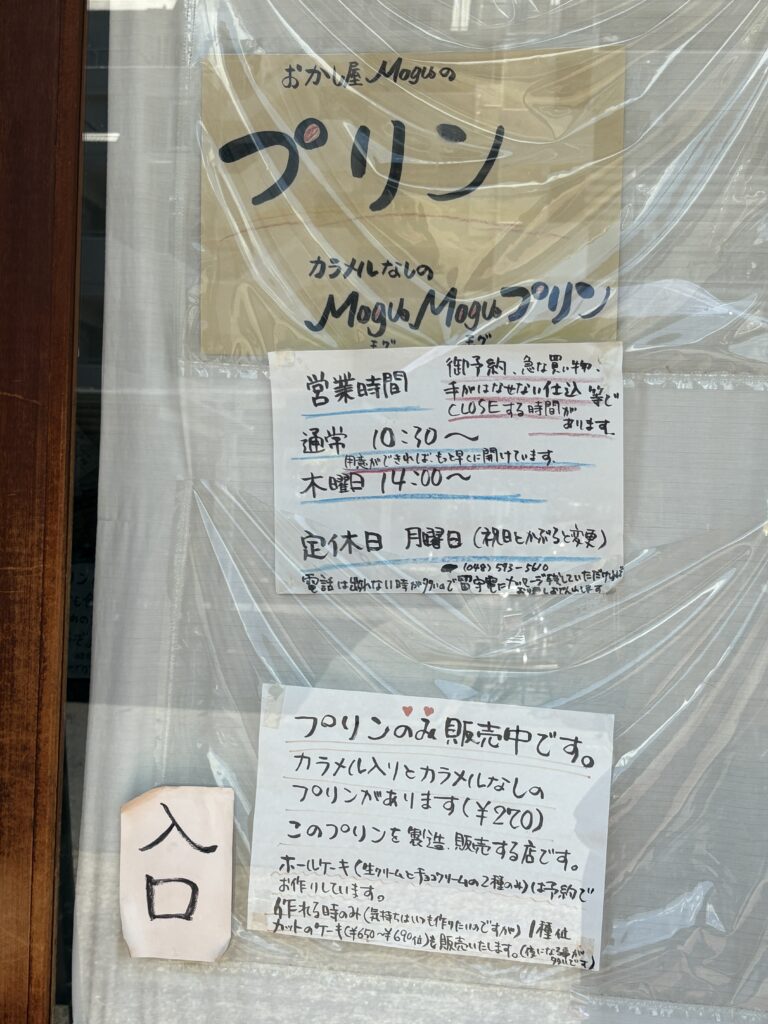 おかし屋Moguの
プリン
カラメルなしの
MoguMoguプリン
モグ モグ
営業時間
御予約、急な買い物、
手がはなせない仕込 等で
CLOSEする時間が
あります。
通常 10:30〜
用意ができれば、もっと早くに開けています。
木曜日 14:00〜
定休日 月曜日(祝日とかぶると変更)
(048) 593-5610
電話は出れない時が多いので留守電にメッセージ残していただければ
プリンのみ販売中です。
カラメル入りとカラメルなしの
プリンがあります(¥270)
このプリンを製造、販売する店です。
ホールケーキ(生クリームとチョコクリームの2種のみ)は予約で
お作りしています。
作れる時のみ(気持ちはいつも作りたいのですが)1種位
カットのケーキ(¥650〜¥690位)を販売いたします。(夜になる事が
多いです)
入
口